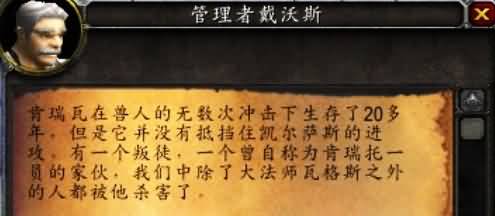 管理者戴沃斯
肯瑞瓦在兽人的无数次冲击下生存了20多
年，但是它并没有抵挡住凯尔萨斯的进
攻。有一个叛徒，一个曾自称为肯瑞托一
员的家伙，我们中除了大法师瓦格斯之外
的人都被他杀害了。